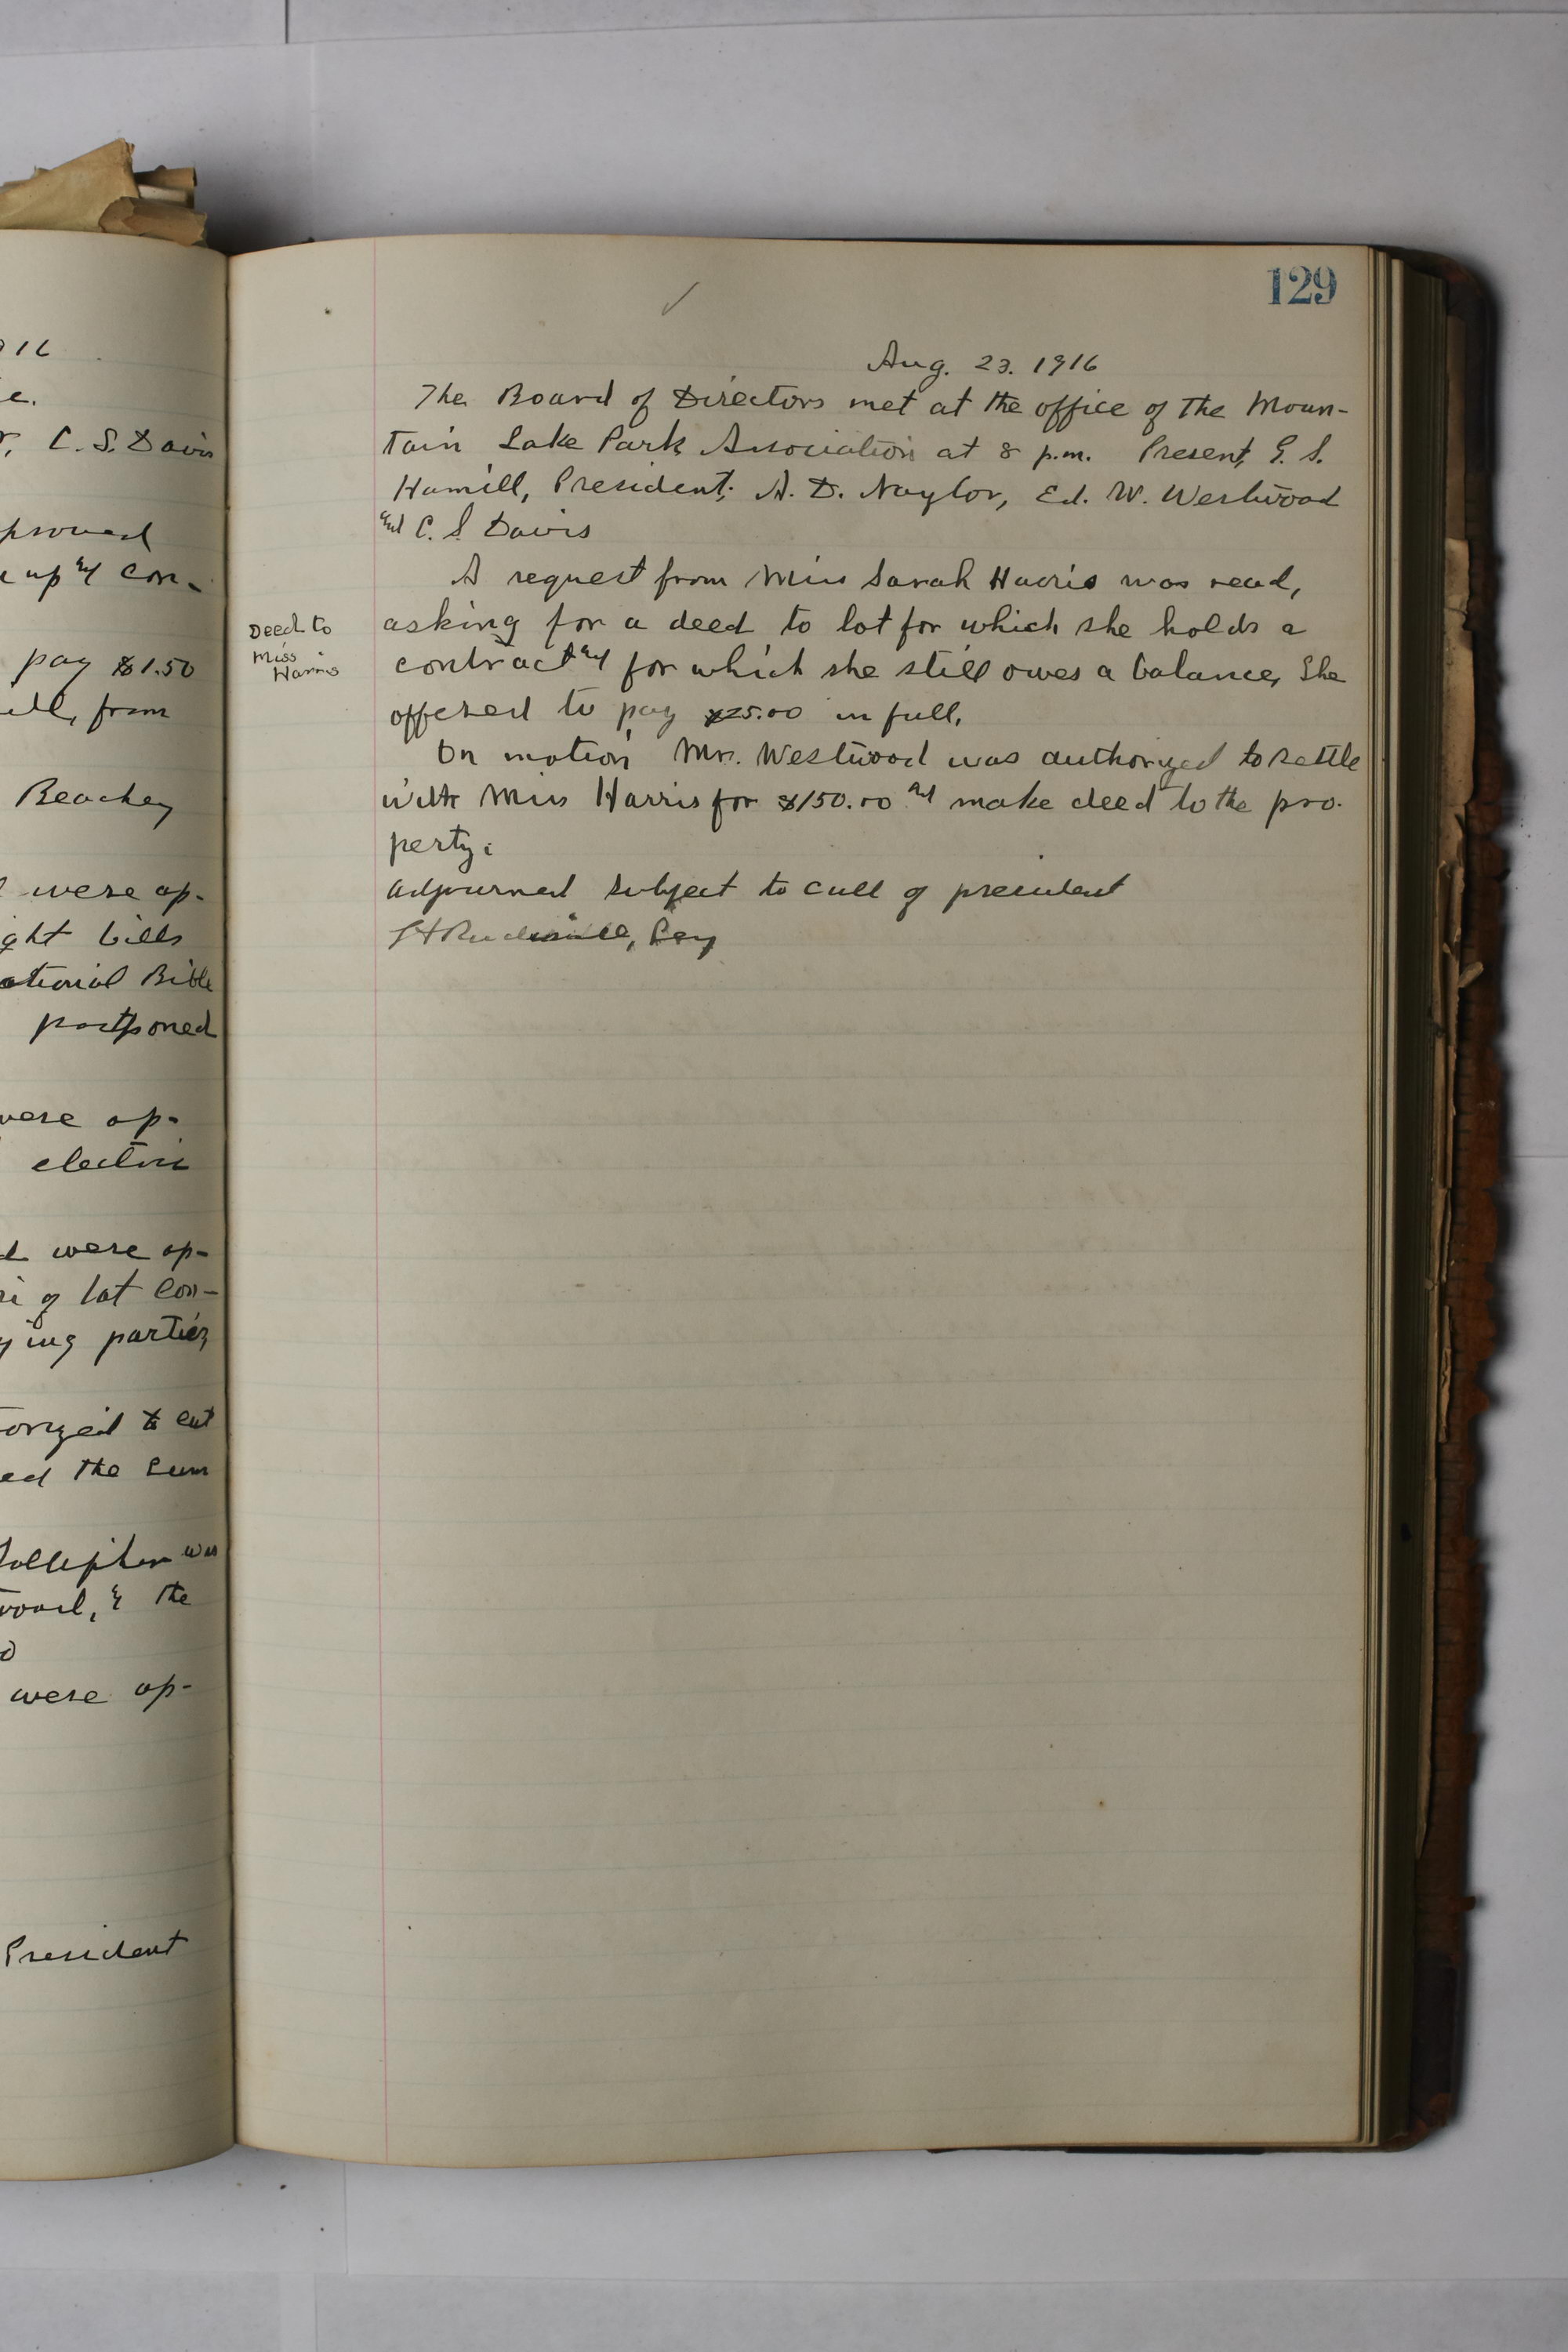 916
e.
r, C. S. Davis
proved
e up and con-
pay $1.50
ill, from
Beachey
were op-
ght bills
ational Bible
postponed
were op-
electric
were op-
g lot con-
ying parties
orized to cut
ed the sum
was
wood, & the
were op-
President
129
Aug. 23. 1916
The Board of Directors met at the office of the Moun-
tain Lake Park Association at 8 p.m. Present, G. S.
Hamill, President; A. D. Naylor, Ed. W. Westwood
and C. S. Davis
A request from Miss Sarah Harris was read,
Deed to
Miss
Harris
asking for a deed to lot for which she holds a
contract and for which she still owes a balance, She
offered to pay $25.00 in full.
On motion Mr. Westwood was authorized to settle
with Miss Harris for $150.00 and make deed to the pro-
perty.
Adjourned subject to call of president
Secy